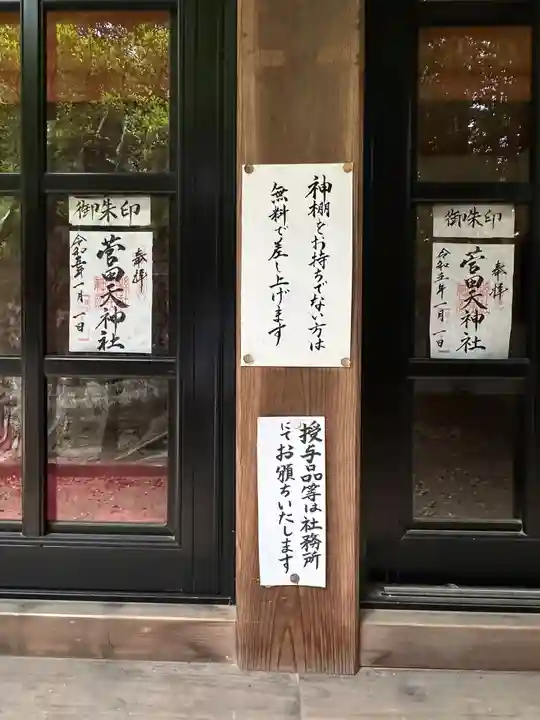 御朱印
奉拝
菅田天神社
令和五年一月一日
神棚をお持ちでない方は
無料で差し上げます
授与品等は社務所
にてお願いいたします
御朱印
奉拝
菅田天神社
令和五年一月一日